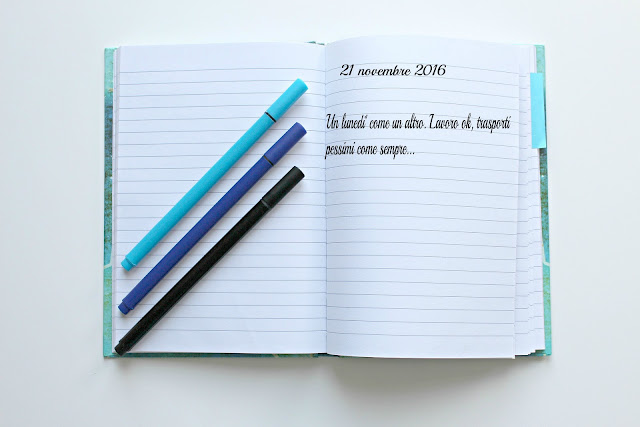 21 novembre 2016
Un lunedì come un altro. Lavoro ok, trasporti
pessimi come sempre...